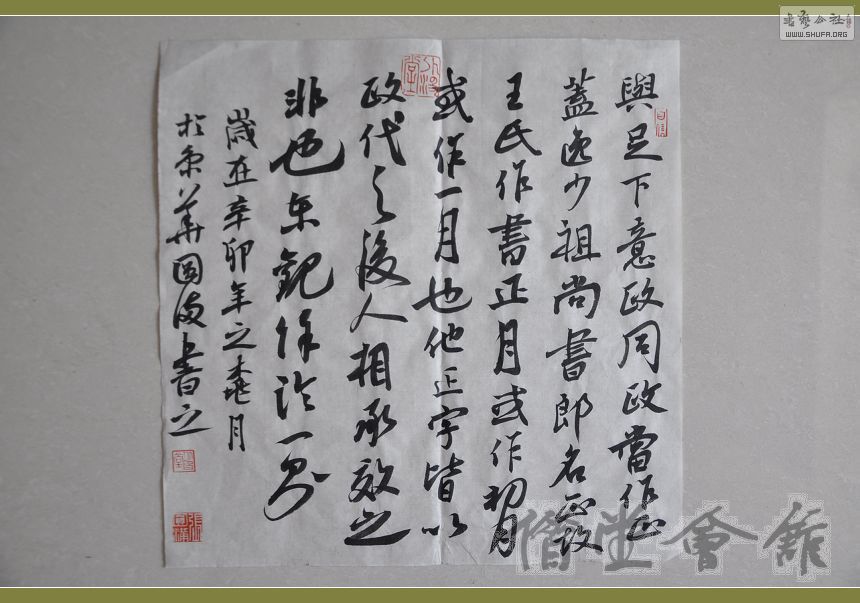 與足下意政同政當作正
蓋逸少祖尚書郎名正故
王氏作書正月或作初月
或作一月也他正字皆以
政代之後人相承效之
非也東觀餘論一則
歲在辛卯年之桃月
於京華書之
書藝公社
WWW.SHUFA.ORG
堂會館